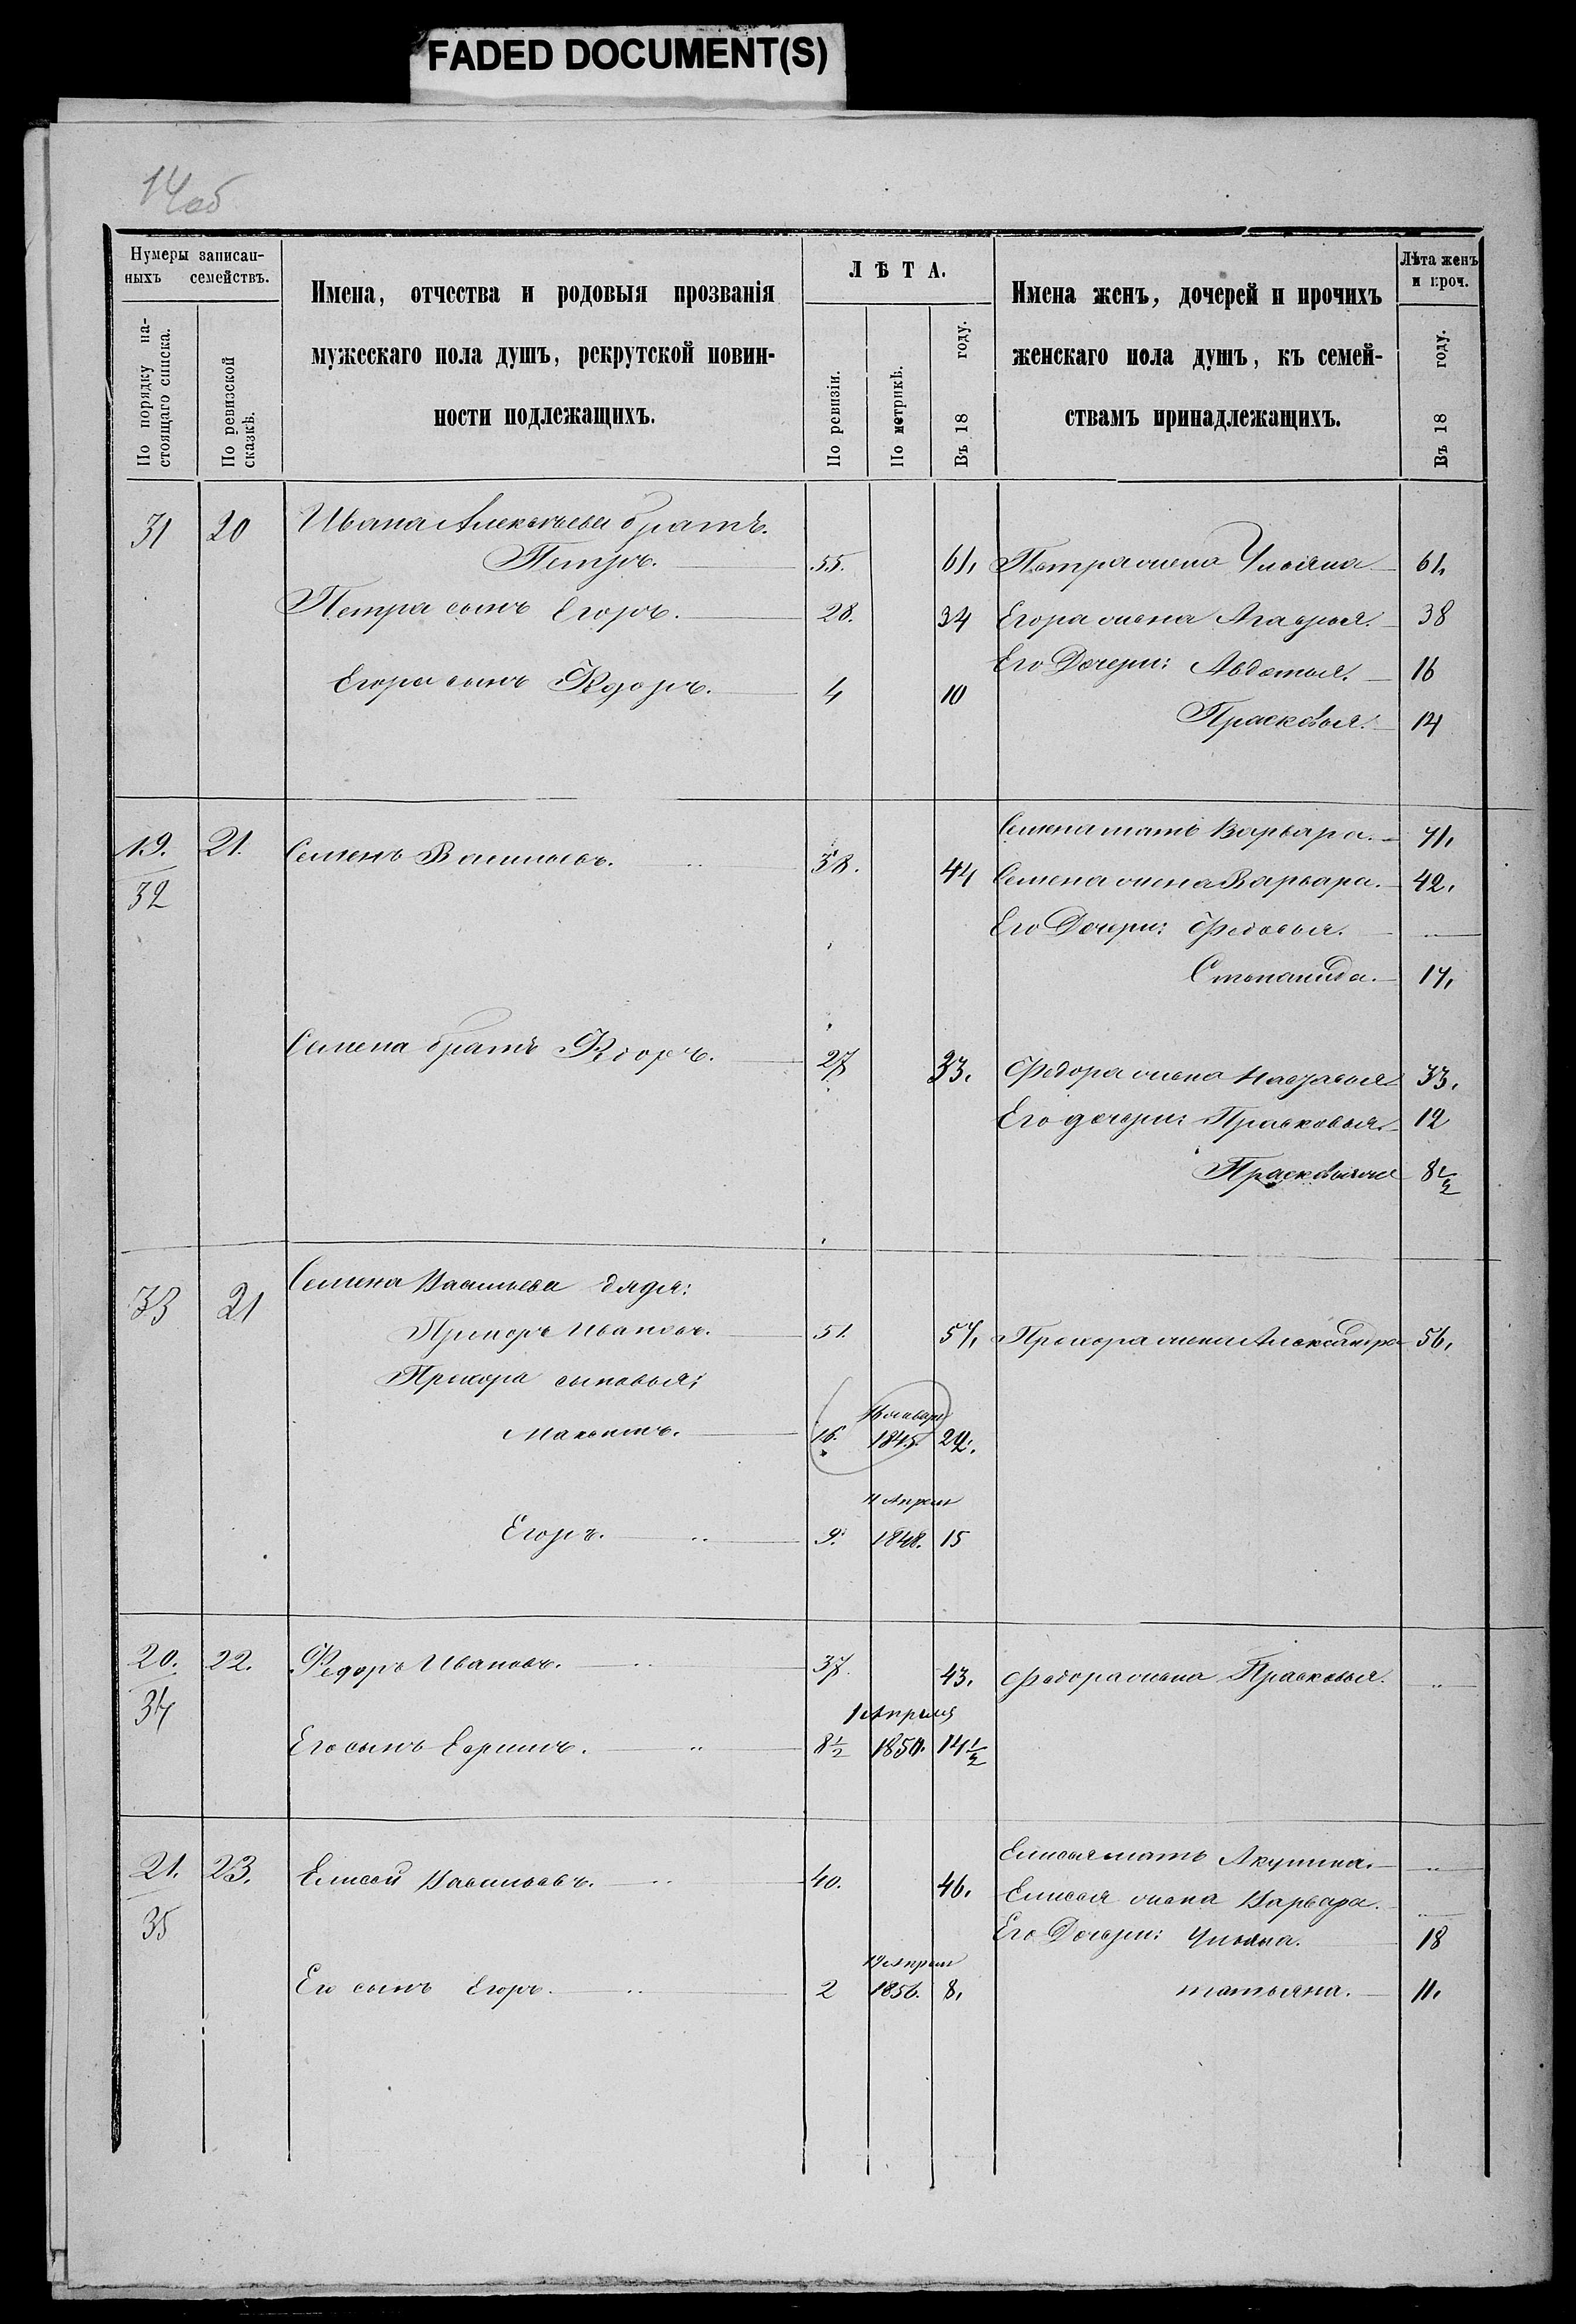 FADED DOCUMENT(S)
14об
Нумеры записан-
ныхъ семействъ.
По порядку на-
стоящаго списка.
По ревизской
сказкѣ.
Имена, отчества и родовыя прозванія
мужескаго пола душъ, рекрутской повин-
ности подлежащихъ.
ЛѢТА.
По ревизіи.
По метрикѣ.
Въ 18 году.
Имена женъ, дочерей и прочихъ
женскаго пола душъ, къ семей-
ствамъ принадлежащихъ.
Лѣта женъ
и проч.
Въ 18 году.
31 20 Ивана Алексѣева братъ.
Петръ. 55. 61, Петра жена Ульяна 61,
Петра сынъ Егоръ. 28. 34 Егора жена Агафья. 38
Его Дочери: Авдотья. 16
Егора сынъ Ѳедоръ. 4 10
Прасковья. 14
Семена мать Варвара. 71,
19. 21. Семенъ Васильевъ. 38. 44 Семена жена Варвара. 42,
32
Его Дочери: Федосья. "
Степанида. 17,
Семена братъ Ѳедоръ. 27 33. Федора жена 33,
Его дочери: Прасковья. 12
Прасковья 8½
Семена Васильева дядя:
33 21
Прохоръ Ивановъ. 51. 57, Прохора жена Александра 56,
Прохора сыновья:
16 января
Максимъ. 16. 1845
Апреля
Егоръ. " 9. 1848. 15
20. 22. Федоръ Ивановъ. " 37. 43, Федора жена Прасковья. "
34
1 Апреля
Его сынъ " 8½ 1850. 14½
Елисея мать Акулина. "
21. 23. Елисей Васильевъ. " 40. 46, Елисея жена Варвара. "
35
Его Дочери: Ульяна. 18
Апреля
Его сынъ Егоръ. " 2 1856. 8, татьяна. 11,